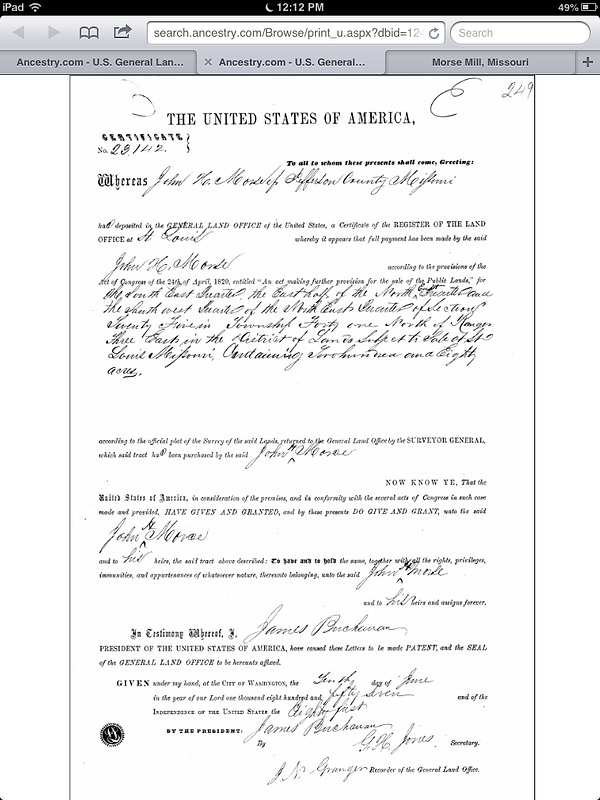 iPad 12:12 PM 49%
search.ancestry.com/Browse/print_u.aspx?dbid=12 Search
Ancestry.com - U.S. General Lan... × Ancestry.com - U.S. General... Morse Mill, Missouri +
249
THE UNITED STATES OF AMERICA,
CERTIFICATE
No. 23,142.
To all to whom these presents shall come, Greeting:
Whereas John H. Morse of Jefferson County Missouri
had deposited in the GENERAL LAND OFFICE of the United States, a Certificate of the REGISTER OF THE LAND
OFFICE at St Louis whereby it appears that full payment has been made by the said
John H. Morse according to the provisions of the
Act of Congress of the 24th of April, 1820, entitled "An act making further provision for the sale of the Public Lands," for
the South East Quarter, the East half of the North Quarter and
the South West Quarter of the North East Quarter of Section
Twenty Five in Township Forty one North of Range
Three East, in the District of Lands Subject to Sale at St
Louis Missouri, Containing Two hundred and Eighty
acres.
according to the official plat of the Survey of the said Lands, returned to the General Land Office by the SURVEYOR GENERAL,
which said tract had been purchased by the said John H Morse
NOW KNOW YE, That the
United States of America, in consideration of the premises, and in conformity with the several acts of Congress in such case
made and provided, HAVE GIVEN AND GRANTED, and by these presents DO GIVE AND GRANT, unto the said
John H Morse
and to his heirs, the said tract above described: To have and to hold the same, together with all the rights, privileges,
immunities, and appurtenances of whatsoever nature, thereunto belonging, unto the said John H Morse
and to his heirs and assigns forever.
In Testimony Whereof, I, James Buchanan
PRESIDENT OF THE UNITED STATES OF AMERICA, have caused these Letters to be made PATENT, and the SEAL
of the GENERAL LAND OFFICE to be hereunto affixed.
GIVEN under my hand, at the CITY OF WASHINGTON, the Tenth day of June
in the year of our Lord one thousand eight hundred and fifty seven and of the
INDEPENDENCE OF THE UNITED STATES the Eighty first
BY THE PRESIDENT: James Buchanan
By G. H. Jones, Secretary.
J. N. Granger Recorder of the General Land Office.